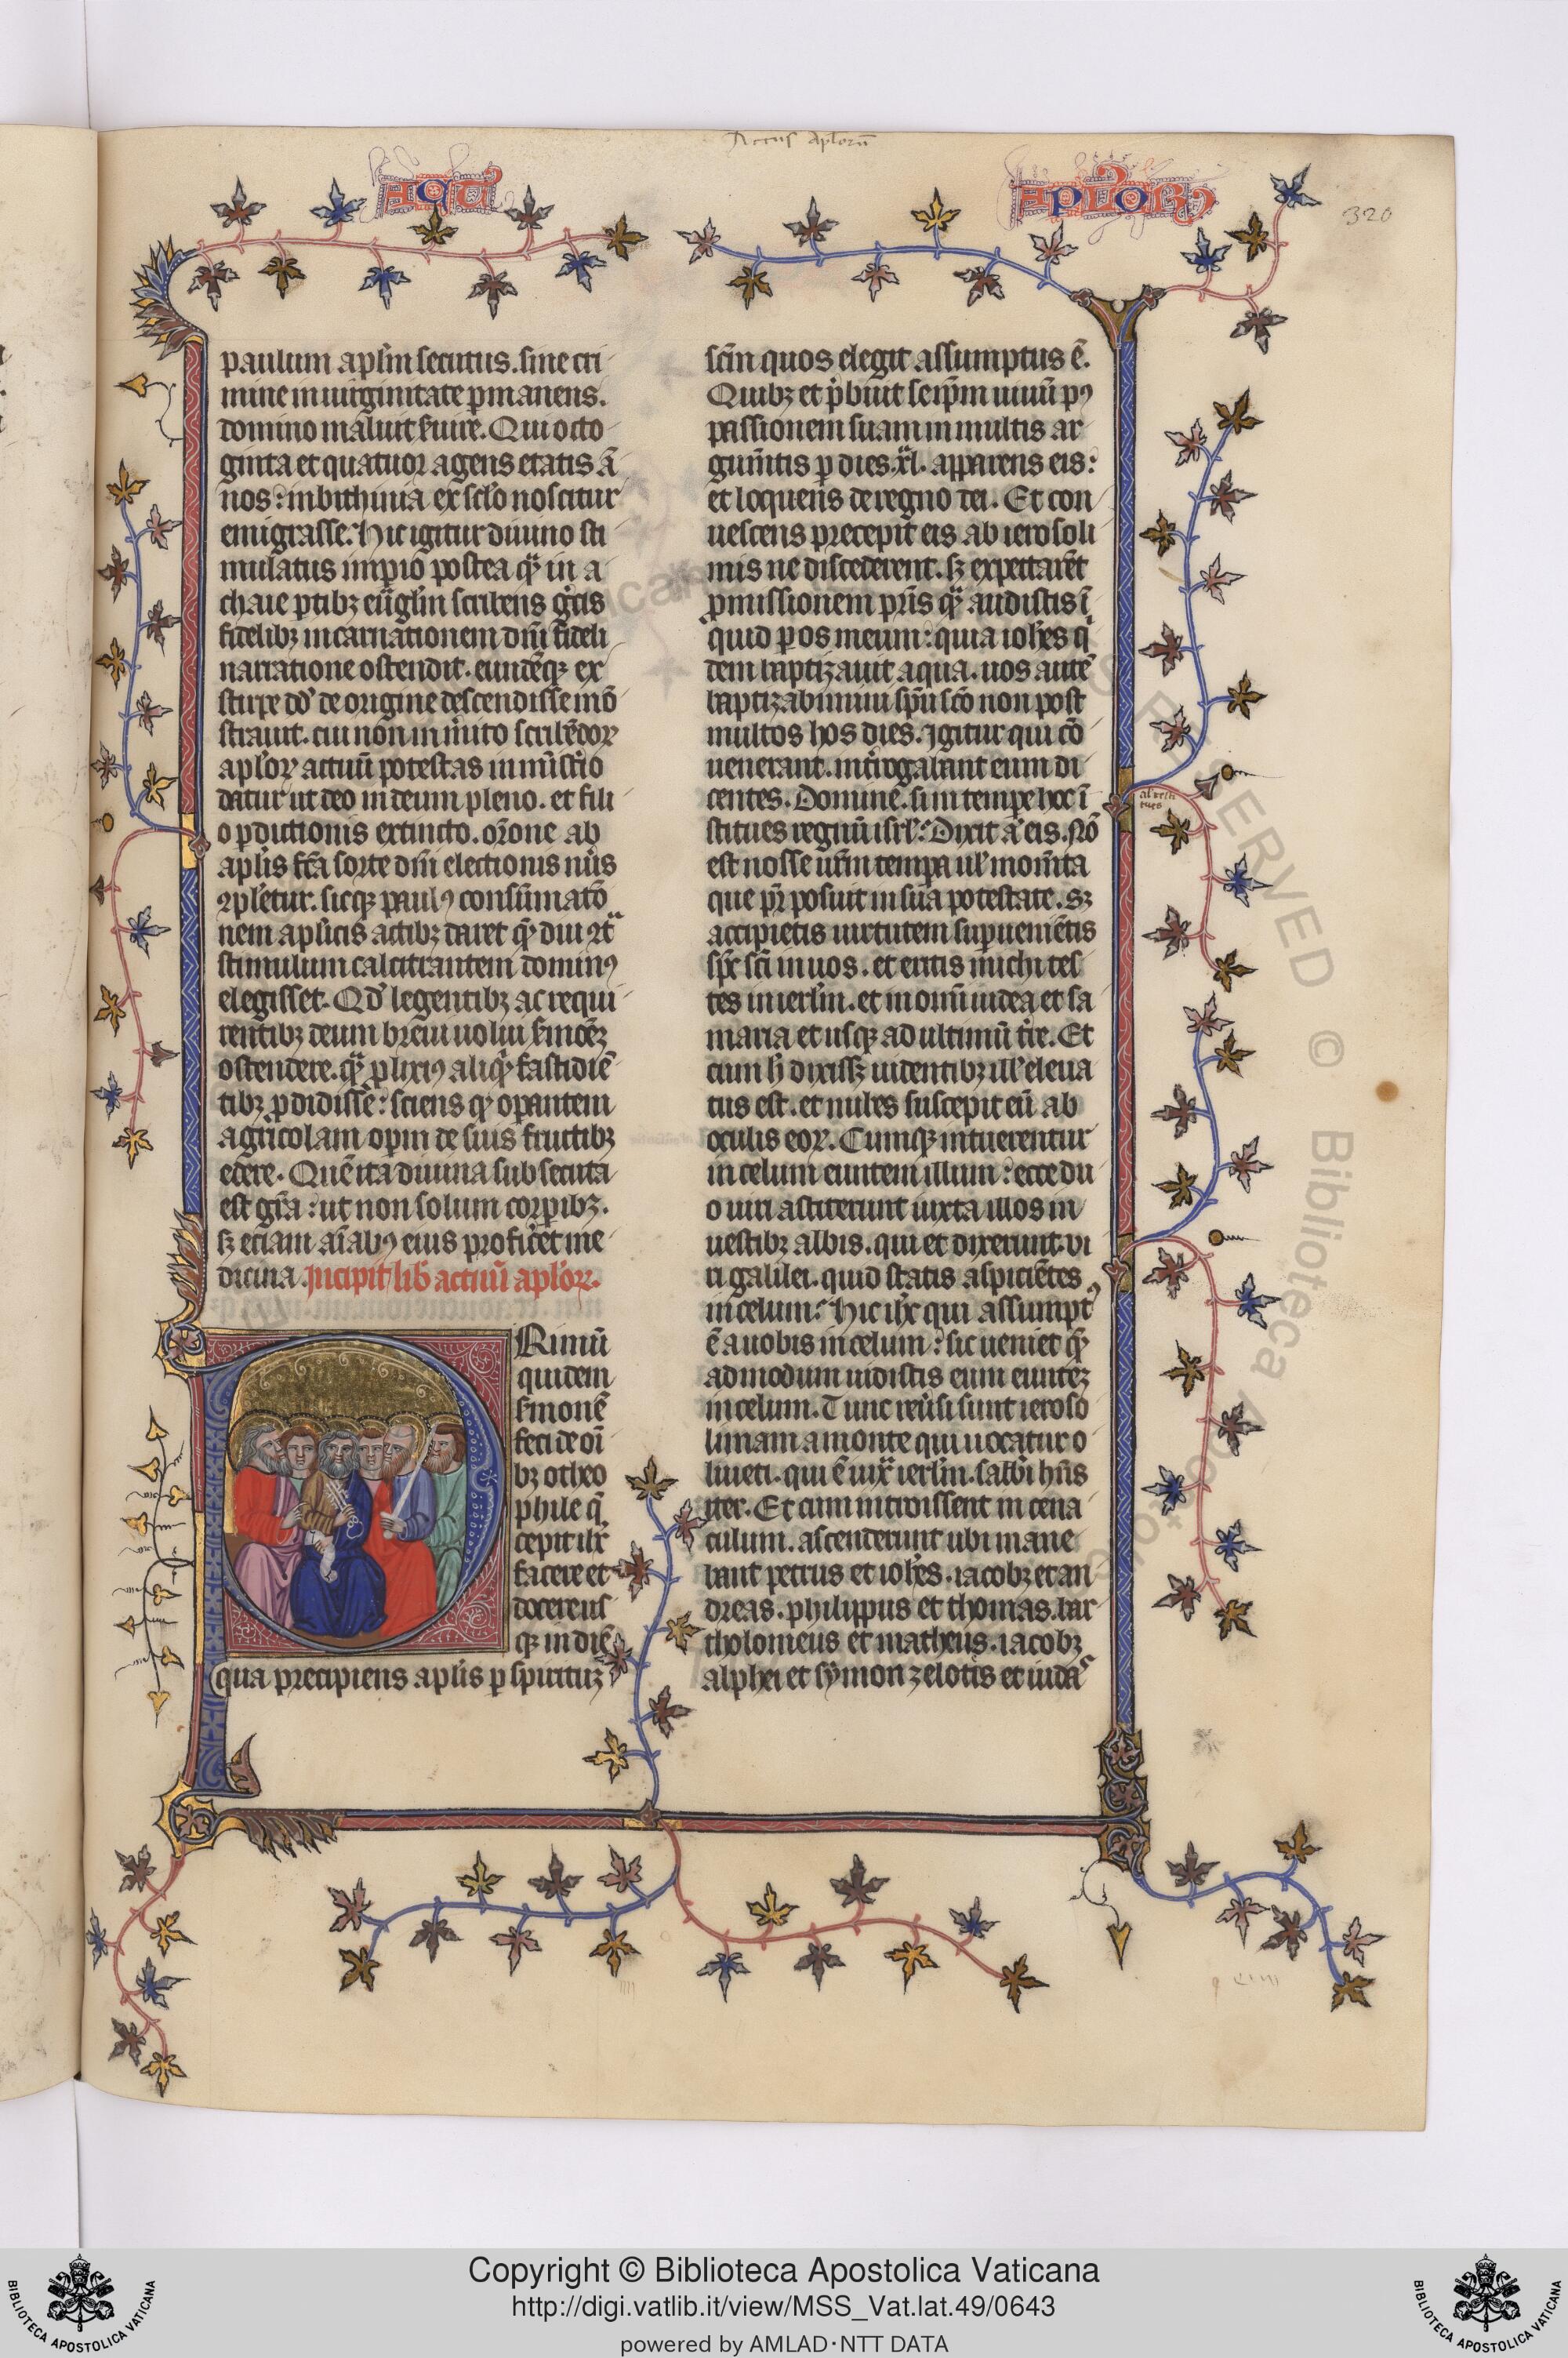 Actus aplorũ
Actꝰ
Aplorꝝ
320
paulum aplm̃ secutus. sine cri
mine in uirginitate ꝑmanens.
domino maluit s̃uire. Qui octo
ginta et quatuor agens etatis ã
nos: in bithinia ex sclo noscitur
emigrasse. Hic igitur diuino sti
mulatus imperio postea qͥ in a
chaie ꝑtibꝫ eũglm̃ scribens gͥcis
fidelibꝫ incarnationem dñi fideli
narratione ostendit. eundẽqꝫ ex
stirpe dd̕ de origine descendisse mõ
strauit. cui non in m̕ito scribẽdoꝝ
aploꝝ actuũ potestas in mistͥio
datur ut deo in deum pleno. et fili
o ꝑditionis extincto. orõne ab
aplis fc̃a sorte dñi electionis nũs
ꝯpletur. sicqꝫ paulꝰ consũmatõ
nem aplicis actibꝫ daret qͥ diu ꝯtͣ
stimulum calcitrantem dominꝰ
elegisset. Qd̕ legentibꝫ ac requi
rentibꝫ deum breui uolui s̕mõeꝫ
ostendere. qͥ ꝓlixiꝰ aliqͥ fastidiẽ
tibꝫ ꝓdidisse: sciens qꝫ oꝑantem
agricolam oꝑm de suis fructibꝫ
edere. Quẽ ita diuina subsecuta
est gr̃a: ut non solum corꝑibꝫ.
sꝫ etiam aĩabꝰ eius proficeret me
dicina. Incipit lib̕ actuũ aplorꝝ.
PRimũ
quidem
smonẽ
feci de oĩ
bꝫ o theo
phile qͣ
cepit ihc̃
facere et
docere us
qꝫ in diẽ
qua precipiens aplis ꝑ spirituꝫ
scm̃ quos elegit assumptus ẽ.
Quibꝫ et p̕buit seip̃m uiuũ pꝰ
passionem suam in multis ar
gum̃tis ꝑ dies .xl. apparens eis:
et loquens de regno dei. Et con
uescens precepit eis ab ierosoli
mis ne discederent. sꝫ expectarẽt
ꝓmissionem pr̃is qͣ audistis ĩ
quid ꝑ os meum: quia ioh̕es qͥ
dem baptizauit aqua. uos autẽ
baptizabimini spũ sc̃o non post
multos hos dies. Igitur qui cõ
uenerant. int̕rogabant eum di
centes. Domine. si in tempe hoc ĩ
stitues regnũ isrl̕: Dixit ã eis. Nõ
est nosse ur̃m tempa ul̕ mom̃ta
que pr̃ posuit in sua potestate. Sꝫ
accipietis uirtutem suꝑueniẽtis
spc̃ sc̃i in uos. et eritis michi tes
tes in ierl̃m. et in omĩ iudea et sa
maria et usqꝫ ad ultimũ t̕re. Et
cum h̕ dixissꝫ uidentibꝫ ill̕ eleua
tus est. et nubes suscepit eũ ab
oculis eoꝝ. Cumqꝫ intuerentur
in celum euntem illum: ecce du
o uiri astiterunt iuxta illos in
uestibꝫ albis. qui et dixerunt. Vi
ri galilei. quid statis aspiciẽtes
in celum: Hic ihc̃ qui assumptꝰ
ẽ a uobis in celum: sic ueniet qͥ
admodum uidistis eum eunteꝫ
in celum. Tunc reũsi sunt ieroso
limam a monte qui uocatur o
liueti. qui ẽ iuxͣ ierl̃m. sabb̃i hñs
iter. Et cum introissent in cena
culum. ascenderunt ubi mane
bant petrus et ioh̕es. iacobꝫ et an
dreas. philippus et thomas. bar
tholomeus et matheus. iacobꝫ
alphei et symon zelotis et iudaˢ
al resti
tues
© Biblioteca Apostolica Vaticana
Copyright © Biblioteca Apostolica Vaticana
http://digi.vatlib.it/view/MSS_Vat.lat.49/0643
powered by AMLAD·NTT DATA
BIBLIOTECA APOSTOLICA VATICANA
BIBLIOTECA APOSTOLICA VATICANA